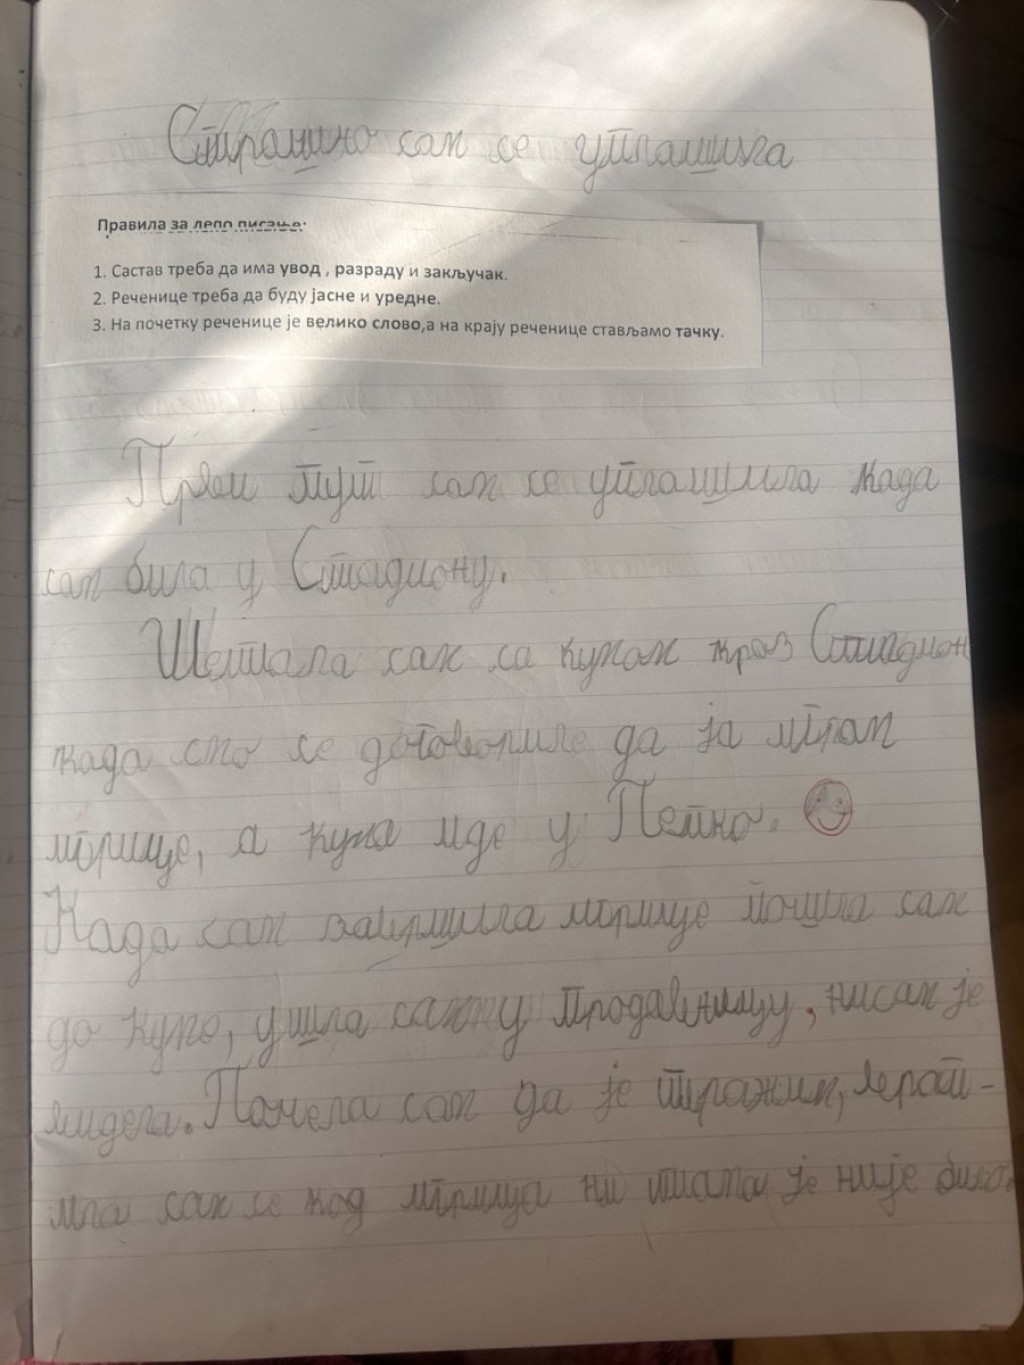 Страшно сам се уплашила
Правила за лепо писање:
1. Састав треба да има увод , разраду и закључак.
2. Реченице треба да буду јасне и уредне.
3. На почетку реченице је велико слово,а на крају реченице стављамо тачку.
Први пут сам се уплашила када
сам била у Стадиону.
Шетала сам са кумом кроз Стадион
када смо се договориле да ја играм
игрице, а кума иде у Пепко.
Када сам завршила игрице пошла сам
до куме, ушла сам у продавницу, нисам је
видела. Почела сам да је тражим, врати-
ла сам се код игрица ни тама је није било.